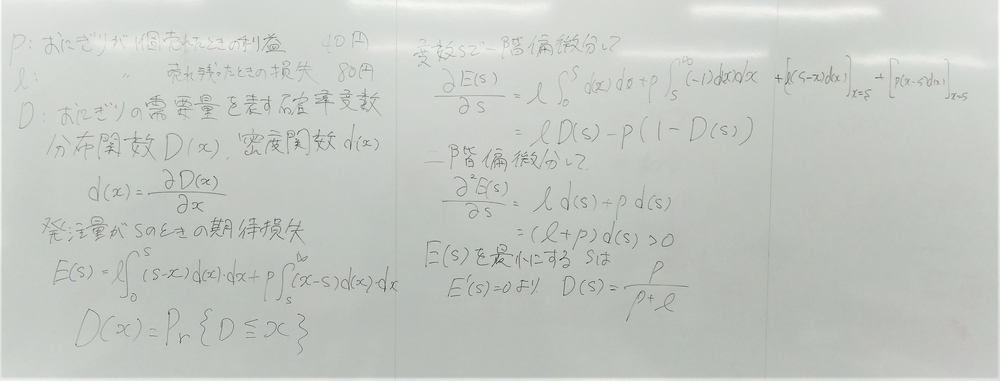 p: おにぎりが1個売れたときの利益 40円
l: 〃 売れ残ったときの損失 80円
D: おにぎりの需要量を表す確率変数
分布関数D(x)、密度関数d(x)
d(x) = ∂D(x)/∂x
発注量がSのときの期待損失
E(s) = l∫₀ˢ(s-x)d(x)・dx + p∫ₛ^∞(x-s)d(x)・dx
D(x) = Pr{D ≦ x}
変数Sで一階偏微分して
∂E(s)/∂s = l∫₀ˢ d(x)dx + p∫ₛ^∞(-1)d(x)dx + [l(s-x)d(x)]ₓ₌ₛ + [p(x-s)d(x)]ₓ₌ₛ
= l D(s) - p(1 - D(s))
二階偏微分して
∂²E(s)/∂s = l d(s) + p d(s)
= (l+p)d(s) > 0
E(s)を最小にするSは
E'(s)=0より D(s) = p/(p+l)